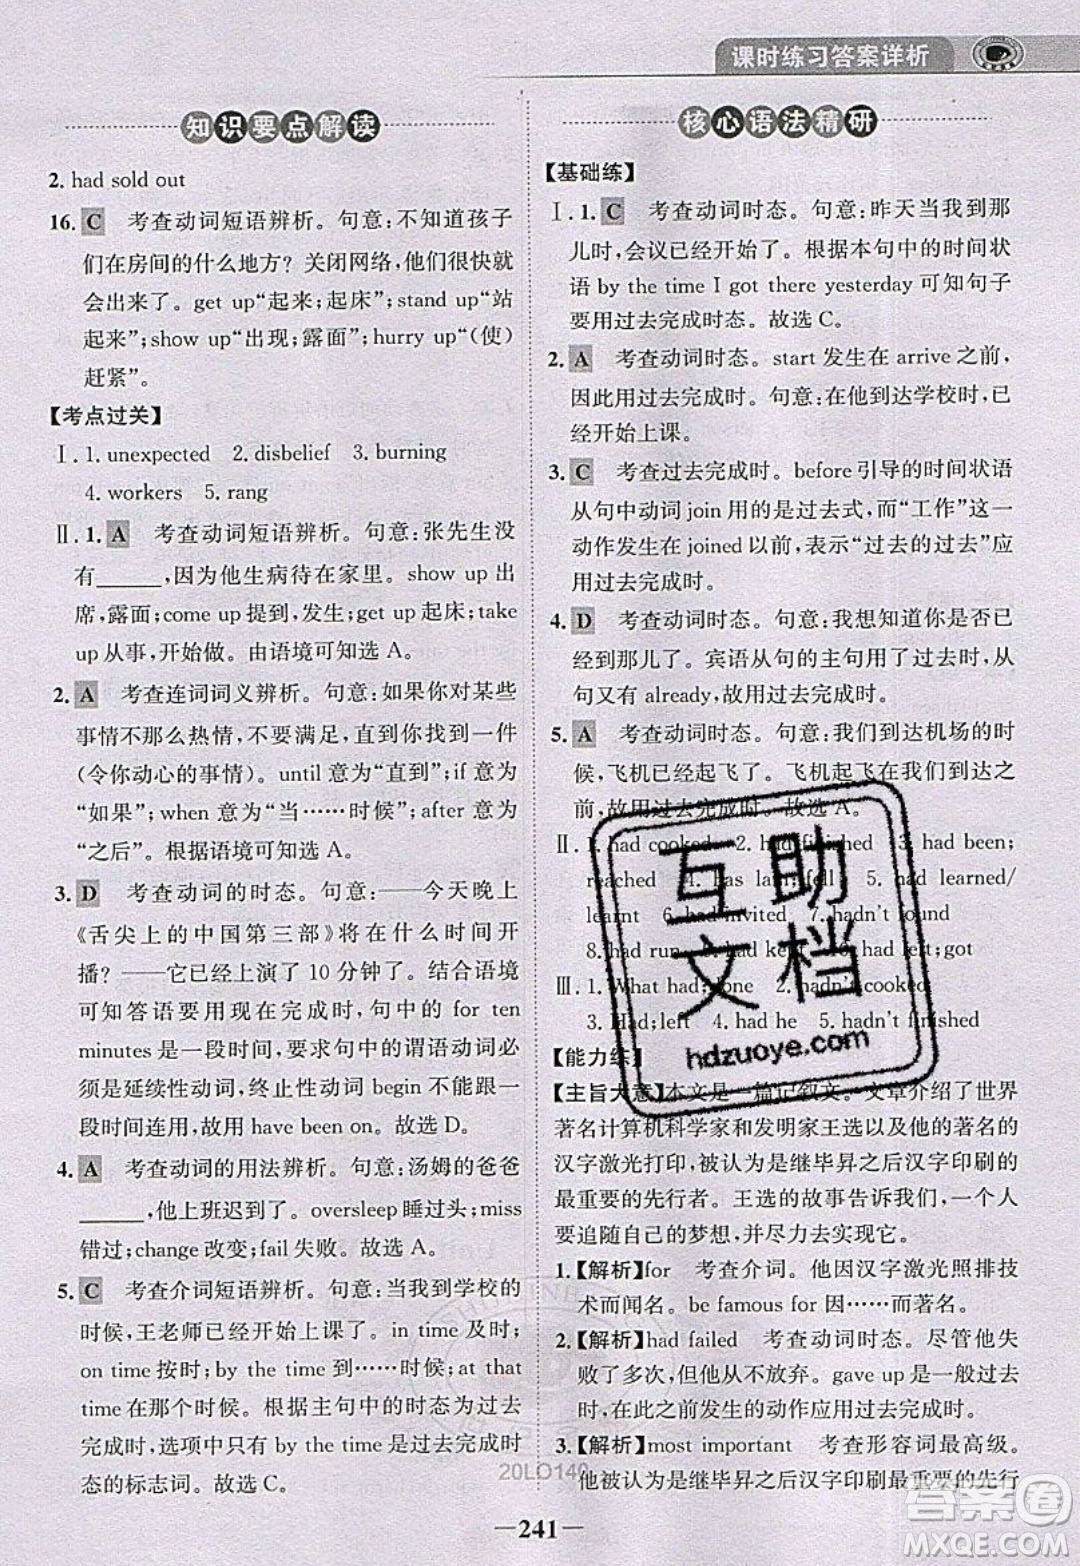 课时练习答案详析
知识要点解读
2. had sold out
16. C 考查动词短语辨析。句意:不知道孩子
们在房间的什么地方?关闭网络,他们就
会出来了。get up“起来;起床”;stand up“站
起来”;show up“出现;露面”;hurry up“(使)
赶紧”。
【考点过关】
Ⅰ. 1. unexpected 2. disbelief 3. burning
4. workers 5. rang
Ⅱ. 1. A 考查动词短语辨析。句意:张先生没
有______,因为他生病待在家里。show up 出
席,露面;come up 提到,发生;get up 起床;take
up 从事,开始做。由语境可知选 A。
2. A 考查连词词义辨析。句意:如果你对某些
事情不那么热情,不要满足,直到找到一件
(令你动心的事情)。until 意为“直到”;if 意为
“如果”;when 意为“当……时候”;after 意为
“之后”。根据语境可知选 A。
3. D 考查动词的时态。句意:——今天晚上
《舌尖上的中国第三部》将在什么时间开
播?——它已经上演了 10 分钟了。结合语境
可知答语要用现在完成时,句中的 for ten
minutes 是一段时间,要求句中的谓语动词必
须是延续性动词,终止性动词 begin 不能跟一
段时间连用,故用 have been on。故选 D。
4. A 考查动词的用法辨析。句意:汤姆的爸爸
______,他上班迟到了。oversleep 睡过头;miss
错过;change 改变;fail 失败。故选 A。
5. C 考查介词短语辨析。句意:当我到学校的
时候,王老师已经开始上课了。in time 及时;
on time 按时;by the time 到……时候;at that
time 在那时候。根据主句中的时态是过去
完成时,选项中只有 by the time 是过去完成时
态的标志词。故选 C。
核心语法精研
【基础练】
Ⅰ. 1. C 考查动词时态。句意:昨天当我到那
儿时,会议已经开始了。根据本句中的时间状
语 by the time I got there yesterday 可知句子
要用过去完成时态。故选 C。
2. A 考查动词时态。start 发生在 arrive 之前,
因此用过去完成时。句意:在他到达学校时,已
经开始上课。
3. C 考查过去完成时。before 引导的时间状语
从句中动词 join 用的是过去式,而“工作”这一
动作发生在 joined 以前,表示“过去的过去”应
用过去完成时。
4. D 考查动词时态。句意:我想知道你是否已
经到那儿了。宾语从句的主句用了过去时,从
句又有 already,故用过去完成时。
5. A 考查动词时态。句意:我们到达机场的时
候,飞机已经起飞了。飞机起飞在我们到达之
前,故用过去完成时。故选 A。
Ⅱ. 1. had cooked 2. had finished 3. had been;
reached 4. has lain;fell 5. had learned/
learnt 6. had invited 7. hadn't found
8. had run had ke had left;got
Ⅲ. 1. What had;done 2. hadn't cooked
3. Had;left 4. had he 5. hadn't finished
【能力练】
【主旨大意】本文是一篇记叙文。文章介绍了世界
著名计算机科学家和发明家王选以及他的著名的
汉字激光打印,被认为是继毕昇之后汉字印刷的
最重要的先行者。王选的故事告诉我们,一定
要追随自己的梦想,并努力去实现它。
1.【解析】for 考查介词。他因汉字激光照排技
术而闻名。be famous for 因……而著名。
2.【解析】had failed 考查动词时态。尽管他失
败了多次,但他从不放弃。gave up 是过去时,
在此之前发生的动作应用过去完成时。
3.【解析】most important 考查形容词最高级。
他被认为是继毕昇之后汉字印刷最重要的先行
互助
文档
hdzuoye.com
20LO140
241
答案圈
MXQE.COM